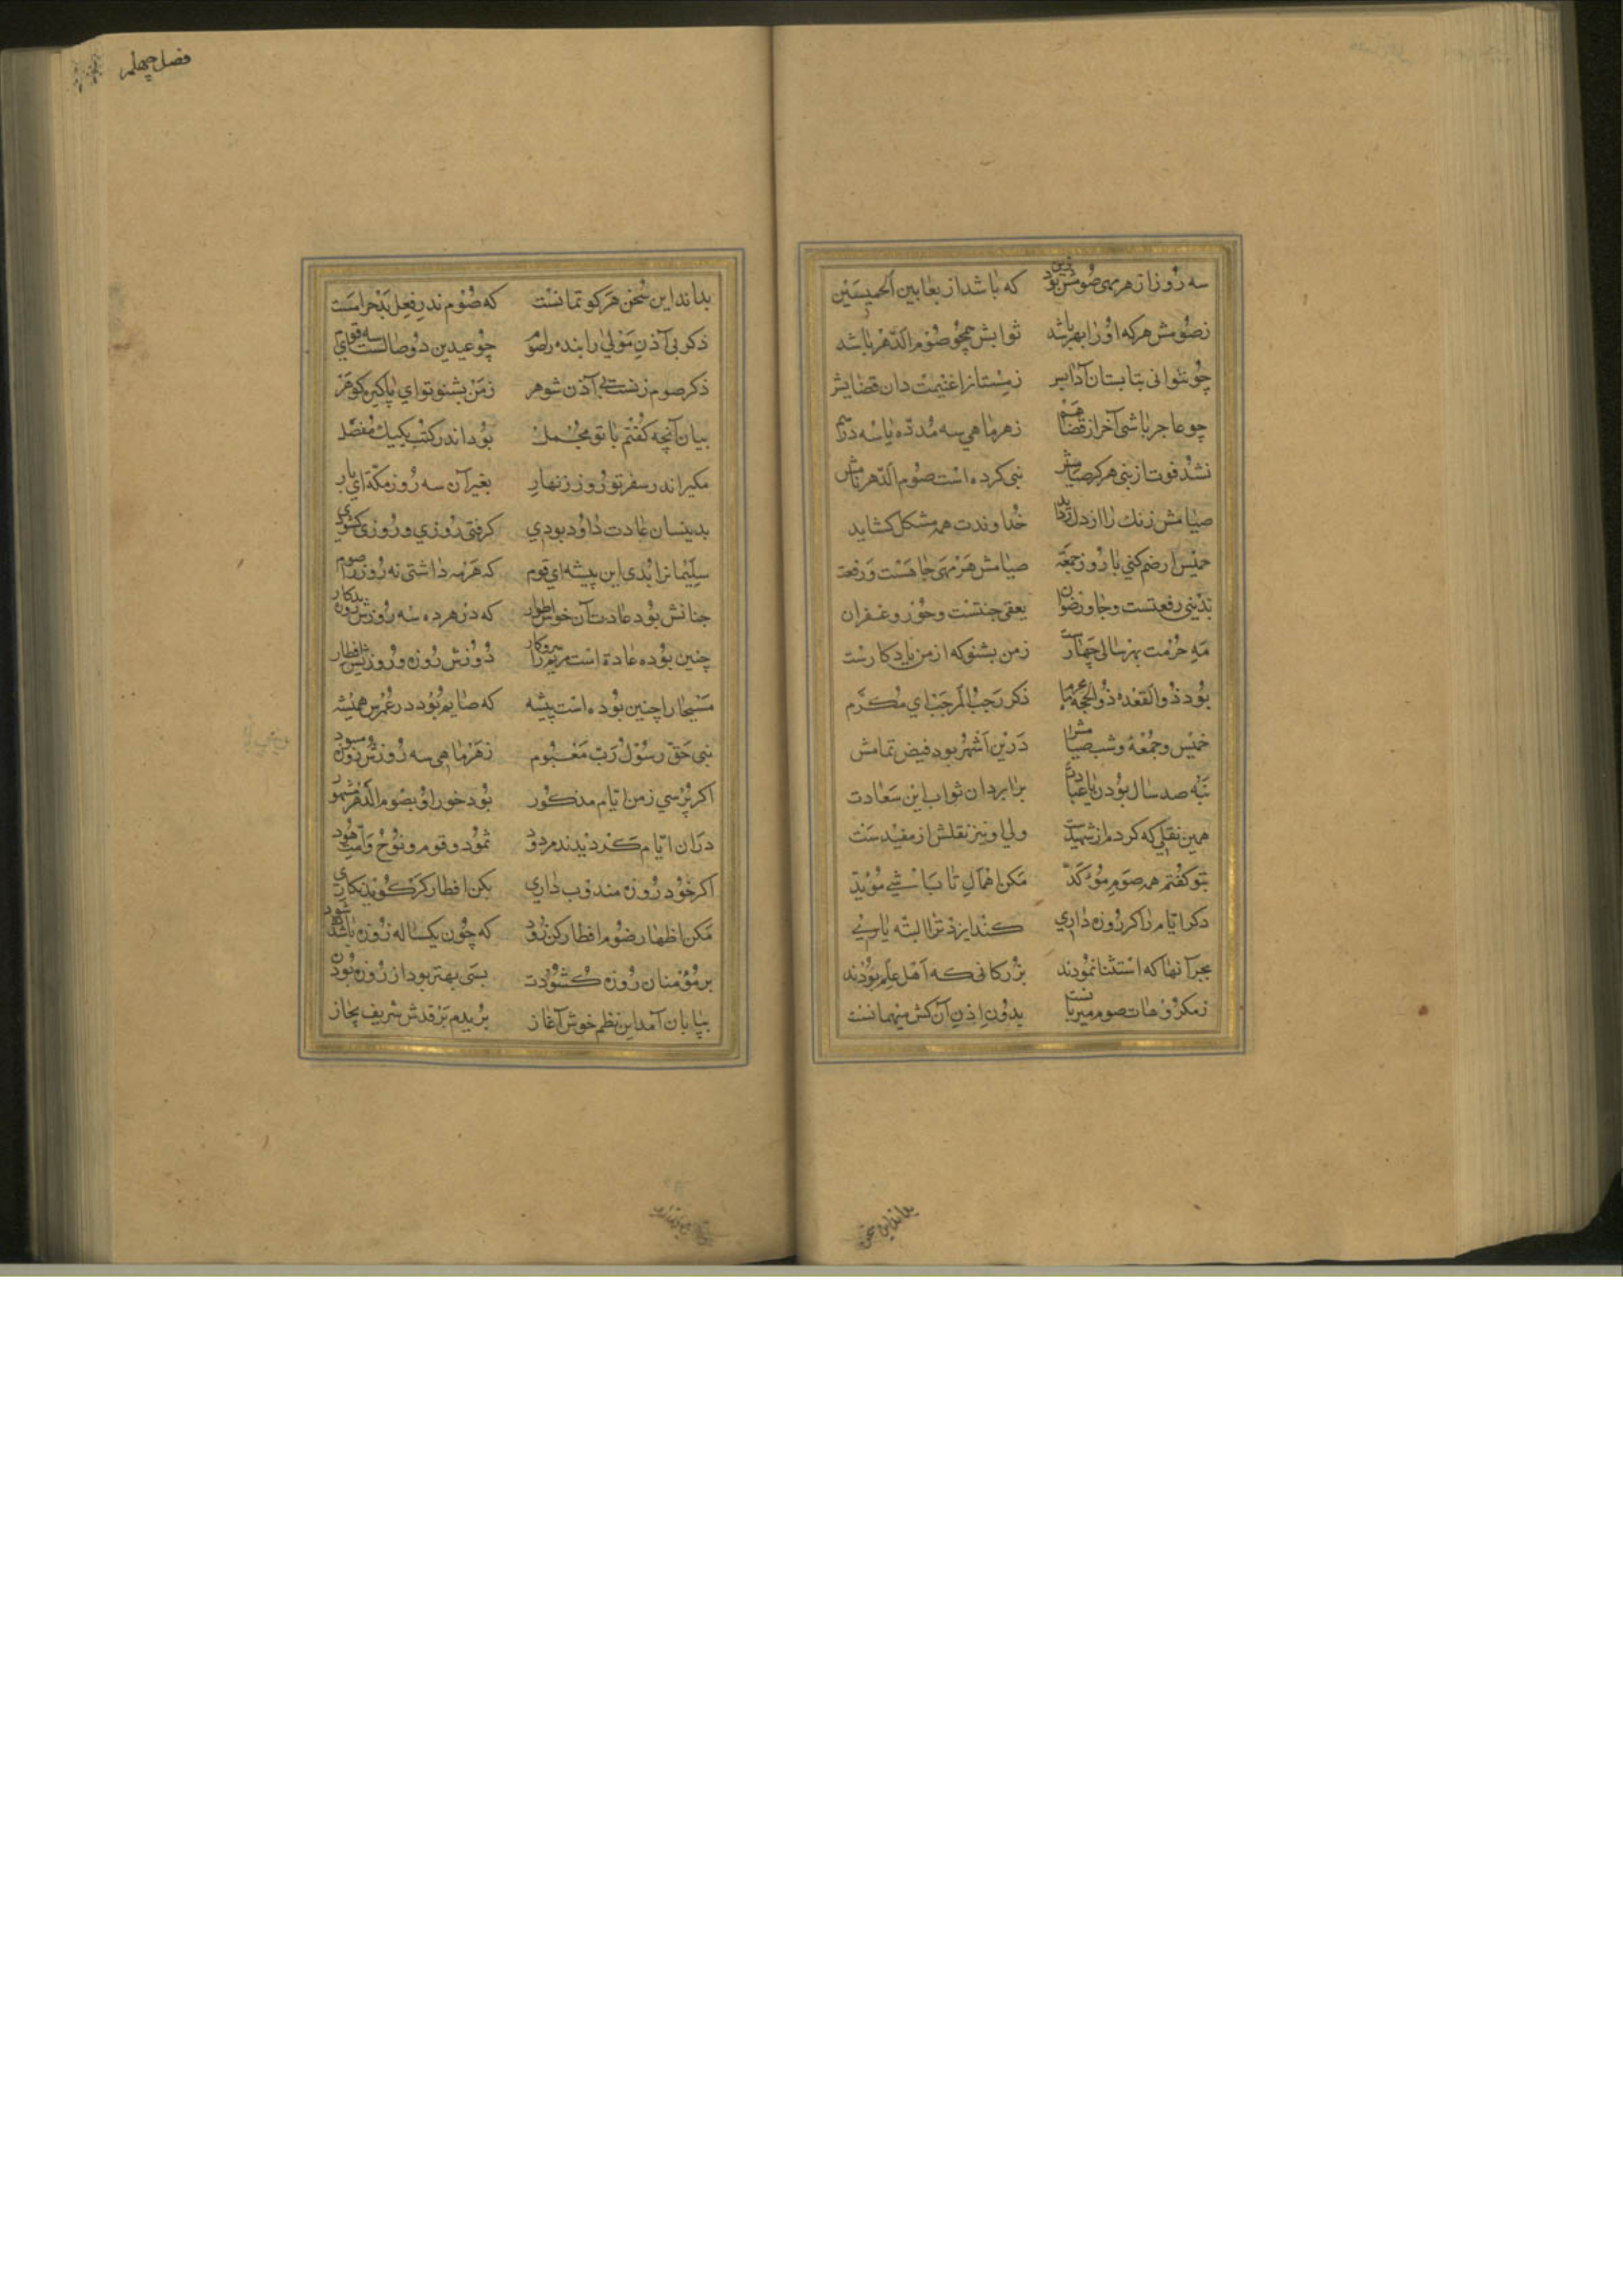 سه روز از هر مهی صومش بود زین که باشد از بعا بین الخمیسین
ز صومش هر که او را بهر باشد ثوابش همچو صوم الدهر باشد
چو نتوانی بتابستان آدابر زمستانرا غنیمت دان قضایش
چو عاجز باشی آخر از قضا هم ز هر ماهی سه مد ده یا سه درهم
نشد فوت از نبی هرکز صیامش نبی کرده است صوم الدهر نامش
صیامش زنك را از دل زداید خداوندت همه مشکل کشاید
خمیس ار ضم کنی با روز جمعه صیامش هر مهی جاهست و رفعة
بدنیی رفعتست و جاه و رضوان بعقبی جنتست و حور و غفران
مه حرمت بهر سالی چهارست ز من بشنو که از من یادکارست
بود ذوالقعده ذوالحجه محرم ذکر رجب المرجب ای مکرم
خمیس و جمعه و شب صیامش درین اشهر بود فیض تمامش
بنه صد سال بودن با عبادة برابر دان ثواب این سعادت
همین نقلی که کردم از شهیدست ولی او نیز نقلش از مفیدست
بتو کفتم همه صوم موکد مکن اهمال تا باشی موید
دکر ایام را کر روزه داری کند ایزد ترا البته یاری
بجز آنها که استثنا نمودند بزرکانی که اهل علم بودند
ز مکروهات صوم میزبانست بدون اذن آن کش میهمانست
بداند این سخن هر کو تمانست که صوم ندر فعل بد حرامست
ذکر بی آذن مولی را بنده را صوم چو عیدین دو وصالست سه قوای
ذکر صوم زنست بی آذن شوهر ز من بشنو تو ای پاکیزه کوهر
بیان آنچه کفتم با تو مجمل بود اندر کتب یکیك مفصل
مکیر اندر سفر تو روزه زنهار بغیر آن سه روز مکه ای یار
بدینسان عادت داود بودی کرفتی روزی و روزی کشودی
سلیمانرا بدی این پیشه ای قوم که هر مه داشتی نه روز را صوم
چنانش بود عادت آن خوش اطوار که در هر ده سه روزش روزه بد کار
چنین بوده عادة است مریم را سروکار دو روزش روزه و روزیش افطار
مسیحا را چنین بوده است پیشه که صایم بود در عمرش همیشه
نبی حق رسول رب معبوم ز هر ماهی سه روزش روزه مسبود
اکر پرسی ز من ایام مذکور بود خود او بصوم الدهر مشهور
دران ایام کردیدند مردود ثمود و قوم و نوح و امت هود
اکر خود روزه مندوب داری بکن افطار کر کویند یکاری
مکن اظهار صوم افطار کن زود که چون یکساله روزه باشدت سود
بر مؤمنان روزه کشودت بسی بهتر بود از روزه بودن
بپایان آمد این نظم خوش آغاز
بداند این سخن
فصل چهلم